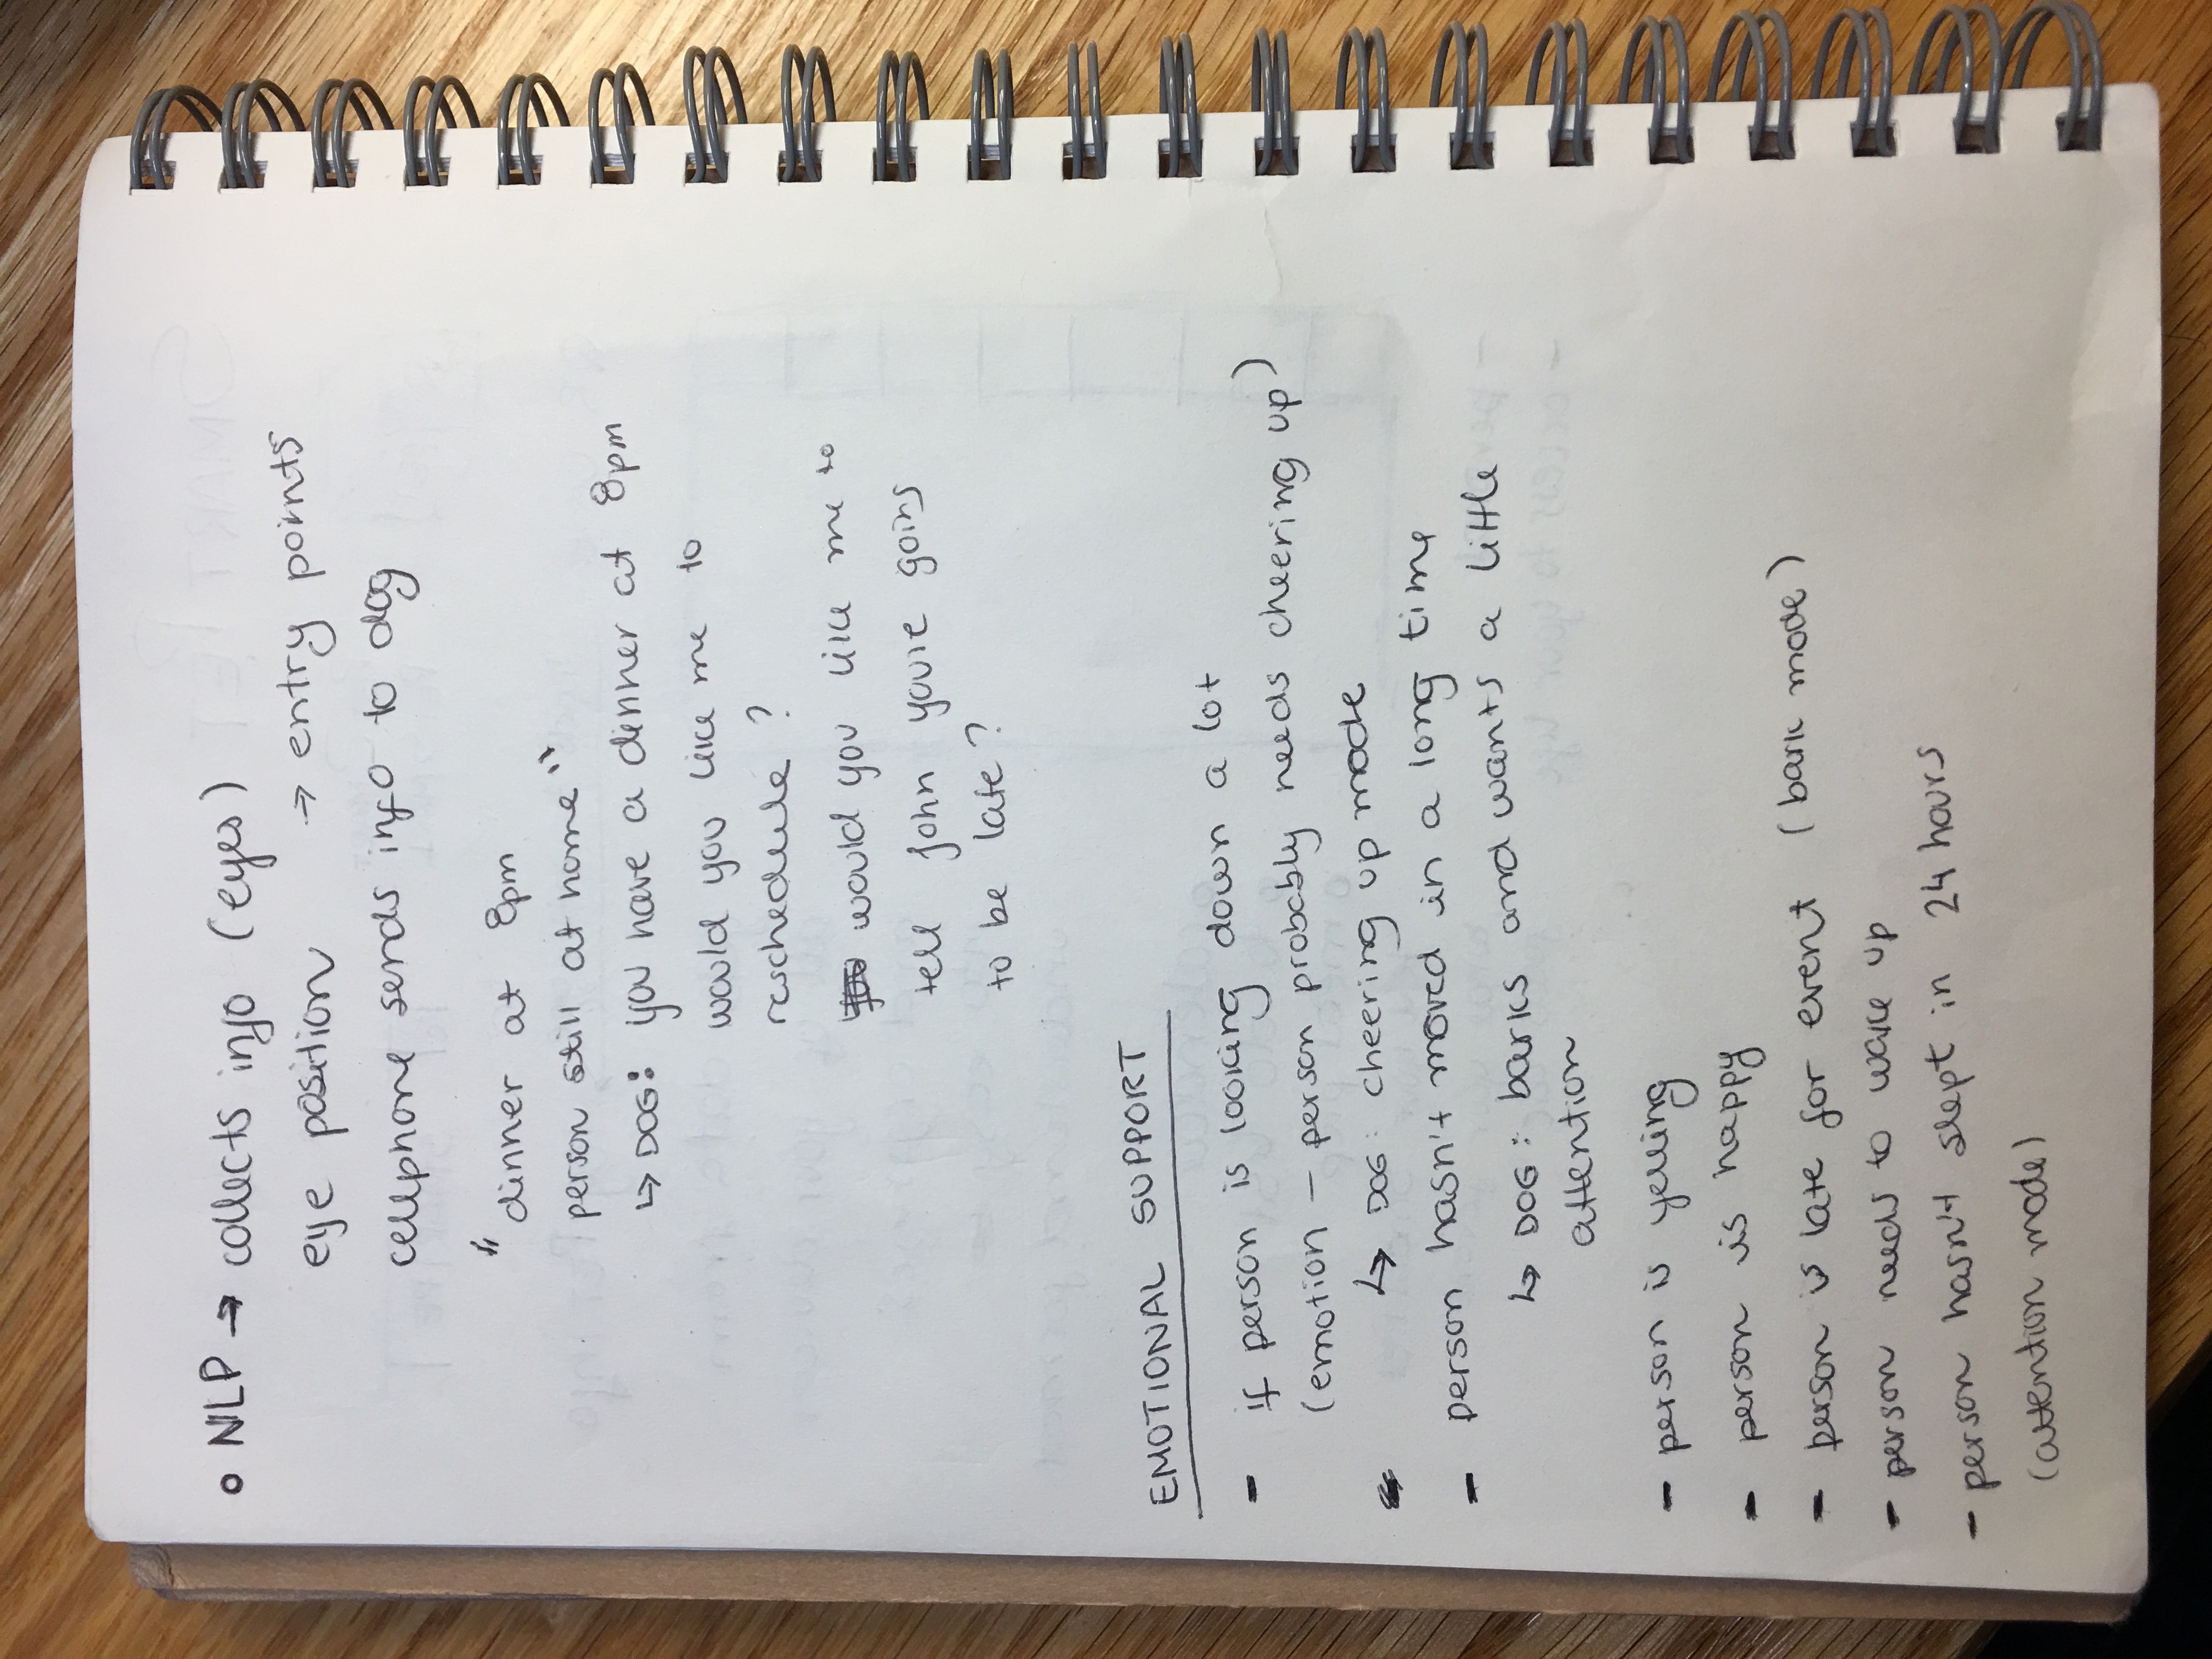 NLP → collects info (eyes)
eye position → entry points
cellphone sends info to dog
"dinner at 8pm
person still at home"
↳ DOG: you have a dinner at 8pm
would you like me to
reschedule?
would you like me to
tell John you're going
to be late?
EMOTIONAL SUPPORT
- if person is looking down a lot
(emotion – person probably needs cheering up)
↳ DOG: cheering up mode
- person hasn't moved in a long time
↳ DOG: barks and wants a little
attention
- person is yelling
- person is happy
- person is late for event (bark mode)
- person needs to wake up
- person hasn't slept in 24 hours
(attention mode)